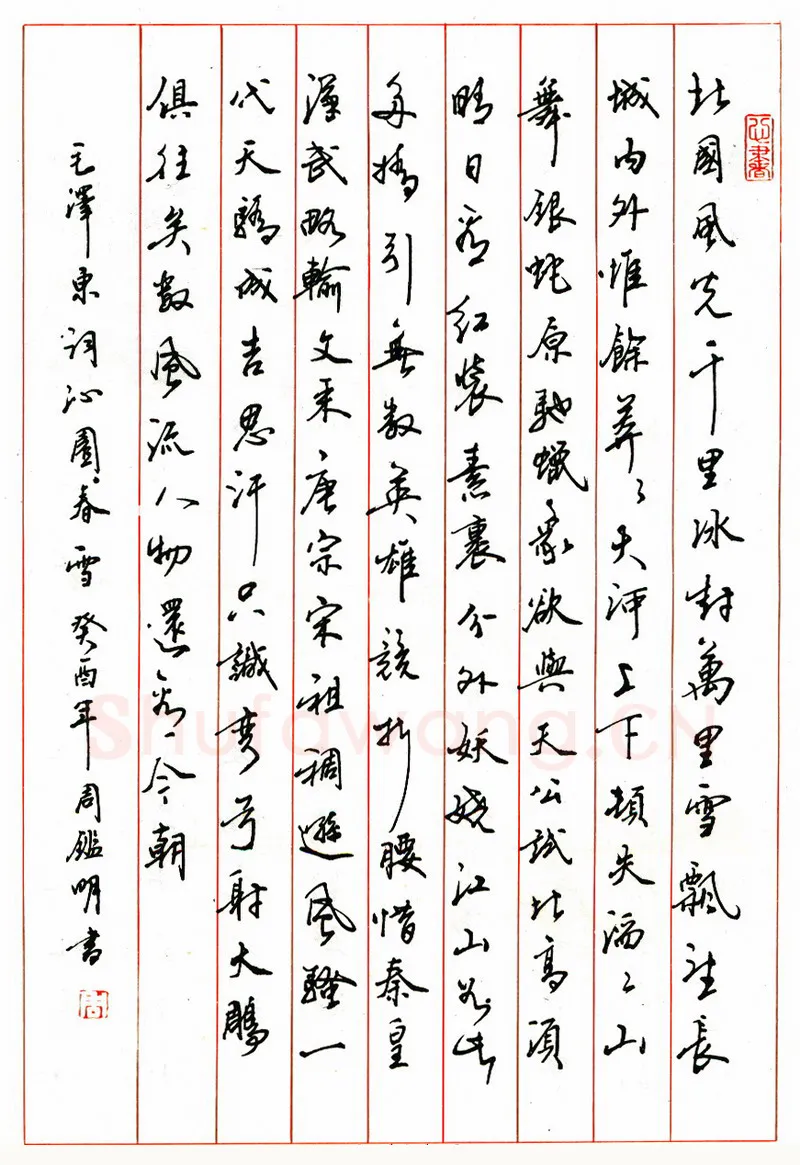 北國風光千里冰封萬里雪飄望長
城内外惟餘莽々大河上下頓失滔々山
舞銀蛇原馳蠟象欲與天公試比高須
晴日看紅裝素裹分外妖嬈江山如此
多嬌引無數英雄競折腰惜秦皇
漢武略輸文采唐宗宋祖稍遜風騷一
代天驕成吉思汗只識彎弓射大鵰
俱往矣數風流人物還看今朝
毛澤東詞沁園春雪 癸酉年 周鑑明書
周
Shufawang.CN